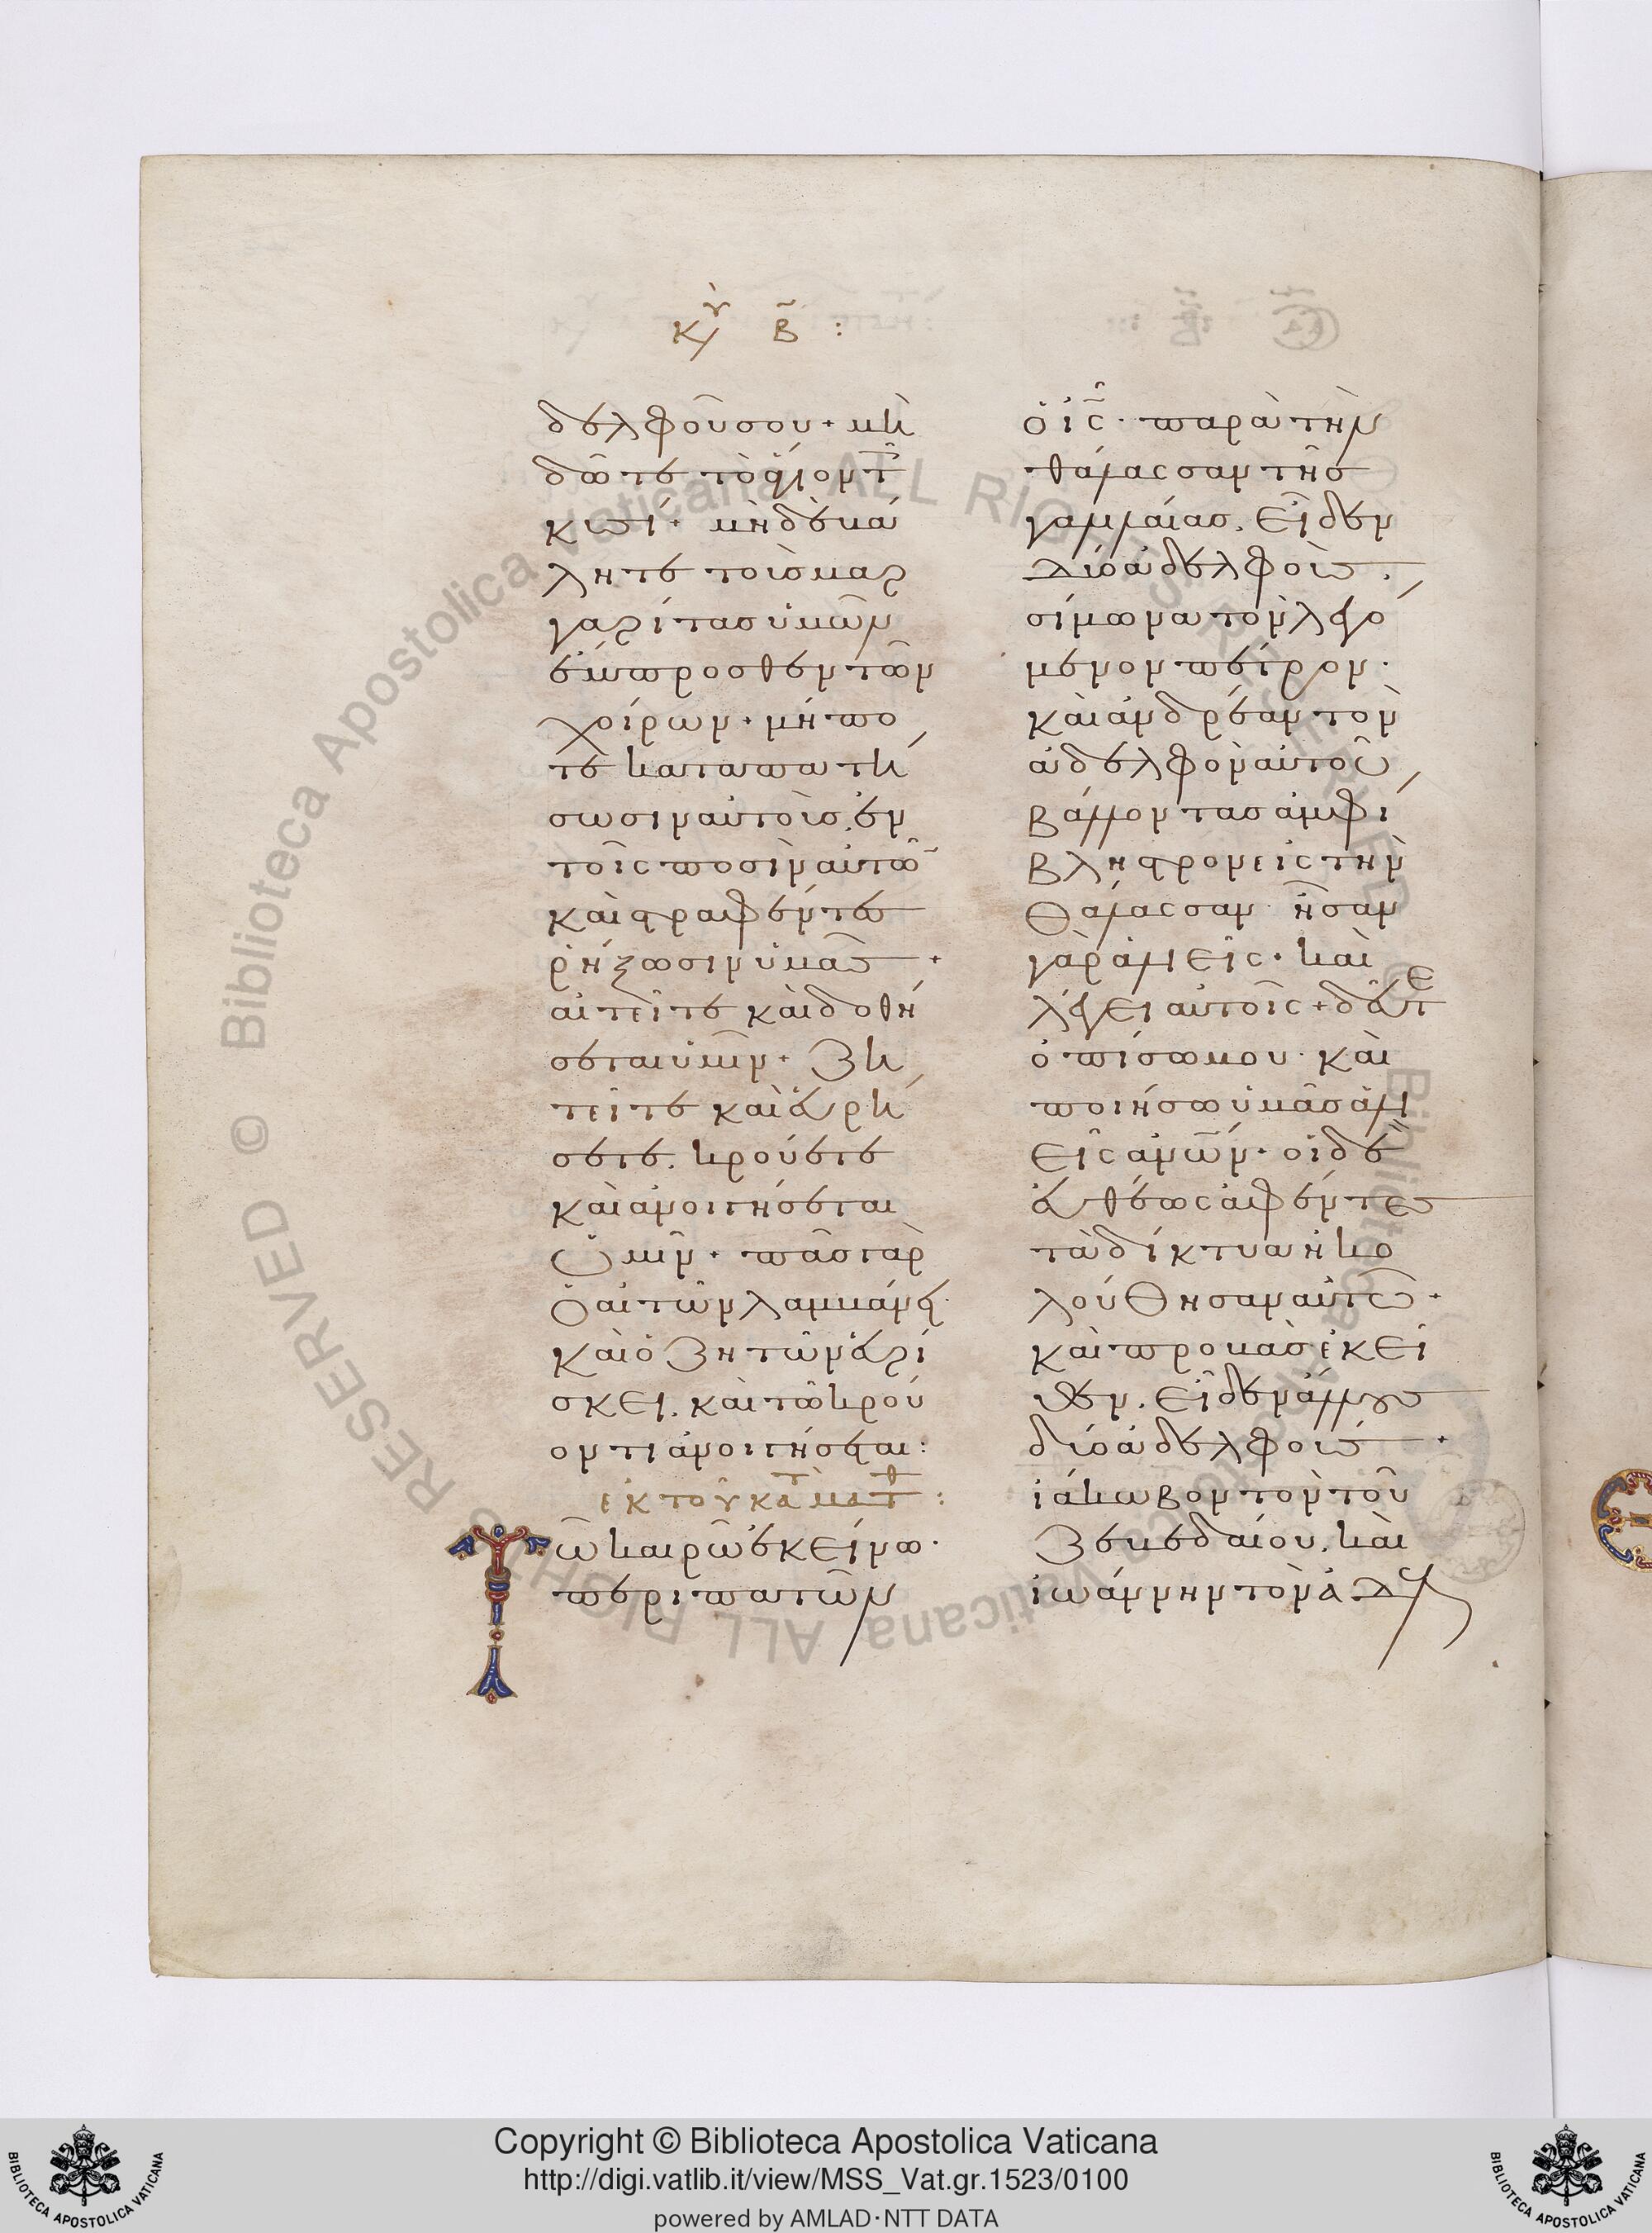 κυ β :
δελφοῦ σου + μὴ
δῶτε τὸ ἅγιον τ
κυσί + μηδὲ βά
λητε τοὺς μαρ
γαρίτας ὑμῶν
ἔμπροσθεν τῶν
χοίρων + μήπο
τε καταπατή
σωσιν αὐτοὺς ἐν
τοῖς ποσὶν αὐτῶ
καὶ στραφέντες
ῥήξωσιν ὑμᾶς +
αἰτεῖτε καὶ δοθή
σεται ὑμῖν + Ζη
τεῖτε καὶ εὑρή
σετε. κρούετε
καὶ ἀνοιγήσεται
ὑμῖν + πᾶς γὰρ
ὁ αἰτῶν λαμβάνει·
καὶ ὁ Ζητῶν εὑρί
σκει. καὶ τῶ κρού
οντι ἀνοιγήσεται :
ἐκ τοῦ κατὰ ματθ :
Τῶ καιρῶ ἐκείνω·
περιπατῶν
ὁ ις· παρὰ τὴν
θάλασσαν τῆς
γαλλαίας. εἶδεν
δύο ἀδελφοὺς.
σίμωνα τὸν λεγό
μενον πέτρον·
καὶ ἀνδρέαν τὸν
ἀδελφὸν αὐτοῦ
βάλλοντας ἀμφί
βληστρον εἰς τὴν
θάλασσαν ἦσαν
γὰρ ἁλιεῖς· καὶ
λέγει αὐτοῖς + δεῦτε
ὀπίσω μου· καὶ
ποιήσω ὑμᾶς ἁλι
εῖς ἀνων· οἱ δὲ
εὐθέως ἀφέντες
τὰ δίκτυα ἠκο
λούθησαν αὐτῶ +
καὶ προβὰς ἐκεῖ
θεν. εἶδεν ἄλλους
δύο ἀδελφοὺς +
ἰάκωβον τὸν τοῦ
Ζεβεδαίου. καὶ
ἰωάννην τὸν ἀδελ
Copyright © Biblioteca Apostolica Vaticana
http://digi.vatlib.it/view/MSS_Vat.gr.1523/0100
powered by AMLAD·NTT DATA
BIBLIOTECA APOSTOLICA VATICANA
BIBLIOTECA APOSTOLICA VATICANA
© Biblioteca Apostolica Vaticana ALL RIGHTS RESERVED
© Biblioteca Apostolica Vaticana ALL RIGHTS RESERVED